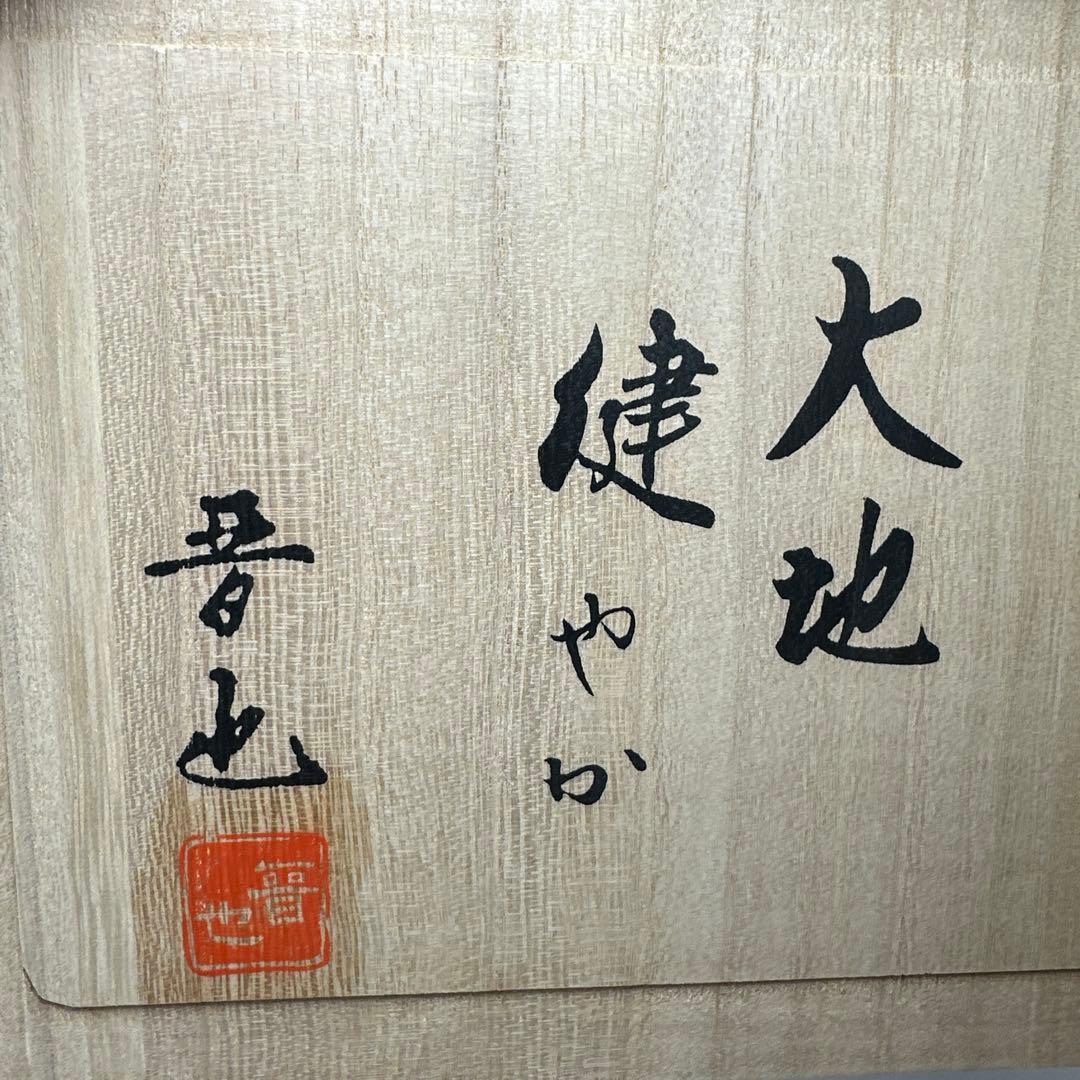 大地
健やか
晋也
晋也